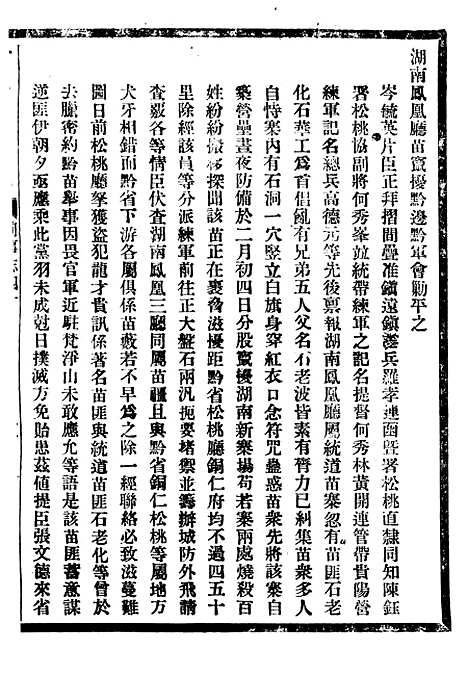 湖南鳳凰廳苗竄擾黔邊黔軍會勦平之
岑毓英片臣正拜摺間疊准鎮遠鎮總兵羅孝連函暨署松桃直隸同知陳鈺
署松桃協副將何秀峯竝統帶練軍之記名提督何秀林黃開運管帶貴陽營
練軍記名總兵高德元等先後稟報湖南鳳凰廳屬統道苗寨忽有苗匪石老
化石華工為首倡亂有兄弟五人父名石老波皆素有膂力已糾集苗衆多人
自恃寨內有石洞一穴竪立白旗身穿紅衣口念符咒蠱惑苗衆先將該寨自
築營壘晝夜防備於二月初四日分股竄擾湖南新寨場苟若寨兩處燒殺百
姓紛紛搬移探聞該苗正在裹脅滋擾距黔省松桃廳銅仁府均不過四五十
里除經該員等分派練軍前往正大盤石兩汛扼要堵禦並籌辦城防外飛請
查覈各等情臣伏查湖南鳳凰三廳同屬苗疆且與黔省銅仁松桃等屬地方
犬牙相錯而黔省下游各屬俱係苗藪若不早為之除一經聯絡必致滋蔓難
圖日前松桃廳拏獲盜犯龍才貴訊係著名苗匪與統道苗匪石老化等曾於
去臘密約黔苗舉事因畏官軍近駐梵淨山未敢應允等語是該苗匪蓄意謀
逆匪伊朝夕亟應乘此黨羽未成尅日撲滅方免貽患茲值提臣張文德來省